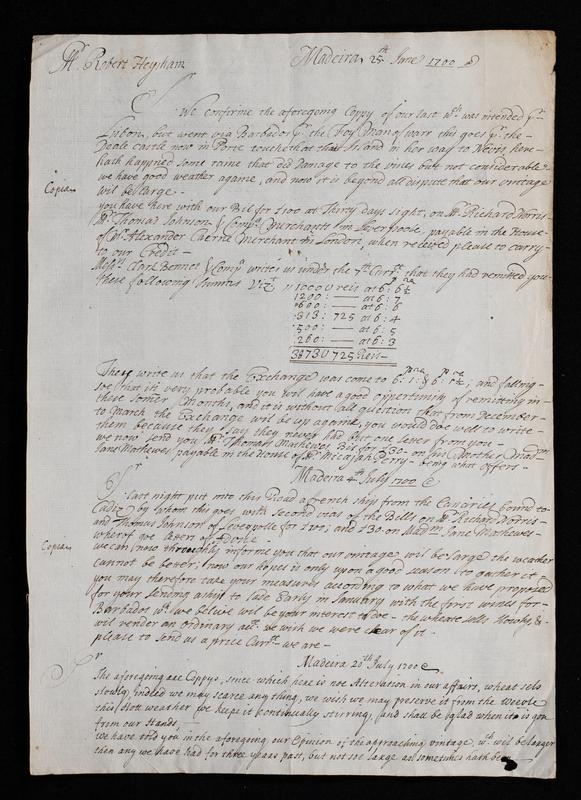 Mr. Robert Heysham Madeira 25th June 1700
Sr
We confirme the aforegoing Coppy of our last wch. was intended pr.
Lisbon, but went via Barbados pr. the Foy Man of warr this goes pr. the
Deale Castle now in Porte touche at that Island in her way to Nevis here
hath happned some raine that did Damage to the vines but not considerable
we have good weather againe, and now it is beyond all dispute that our vintage
Copia
wil be large
you have here with our Bil for £100 at Thirty days sight, on Mr. Richard Norris
Mr. Thomas Johnson & Compa. Merchants in Liverpoole, payable in the House
of Mr. Alexander Caerne Merchant in London, when received please to carry
to our Credit
Messrs. Clark Bennet & Compa. write us under the 7th Currt. that they had remitted you
these following summs Vizt. 1000 U reis at 6: 6½
1200: at 6: 7
600: at 6: 6
313: 725 at 6: 4
500: at 6: 5
260: at 6: 3
3873U725 Reis
They write us that the Exchange was come to 6: 1: & 6: 1½; and falling
soe that its very probable you wil have a good oppertunity of remitting in
these somer months, and it is without all question that from December
to March the Exchange will be up againe, you would doe well to write
them because they say they never had but one letter from you
we now send you Mr. Thomas Mathewes Bil for £30 on his Mother Madm
Jane Mathewes payable in the House of Mr. Micajah Perry being what offers
Madeira 4th July 1700
Sr
Last night put into this Road a french ship from the Canaries bound to
Cadiz by whom this goes with second vias of the Bills on Mr. Richard Norris
and Thomas Johnson of Leverpolle for £100; and £30 on Madm. Jane Mathewes
wherof goe letters of Advice
Copia
we can now throughly informe you that our vintage wil be large the weather
cannot be better; now our hopes is only upon a good season to gather it
you may therefore take your measures according to what we have proposed
for your sending a ship to lade Early in January with the first wines for
Barbados wch. we beleive wil be your interest to doe the wheate sells slowly &
wil render an ordinary acct. we wish we were clear of it
please to send us a price Currt. we are
Sr
Madeira 20th July 1700
The aforegoing are Coppys, since which here is noe Alteration in our affairs, wheat sels
slowly, indeed we may scarce any thing, we wish we may preserve it from the weevle
this Hott weather we keepe it continually stirring, and shall be glad when it is gon
from our Hands
we have told you in the aforegoing, our Opinion of the approaching vintage wch. wil be larger
then any we have had for three years past, but not soe large as sometimes hath been